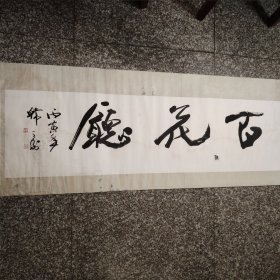 百花廳
丙寅年